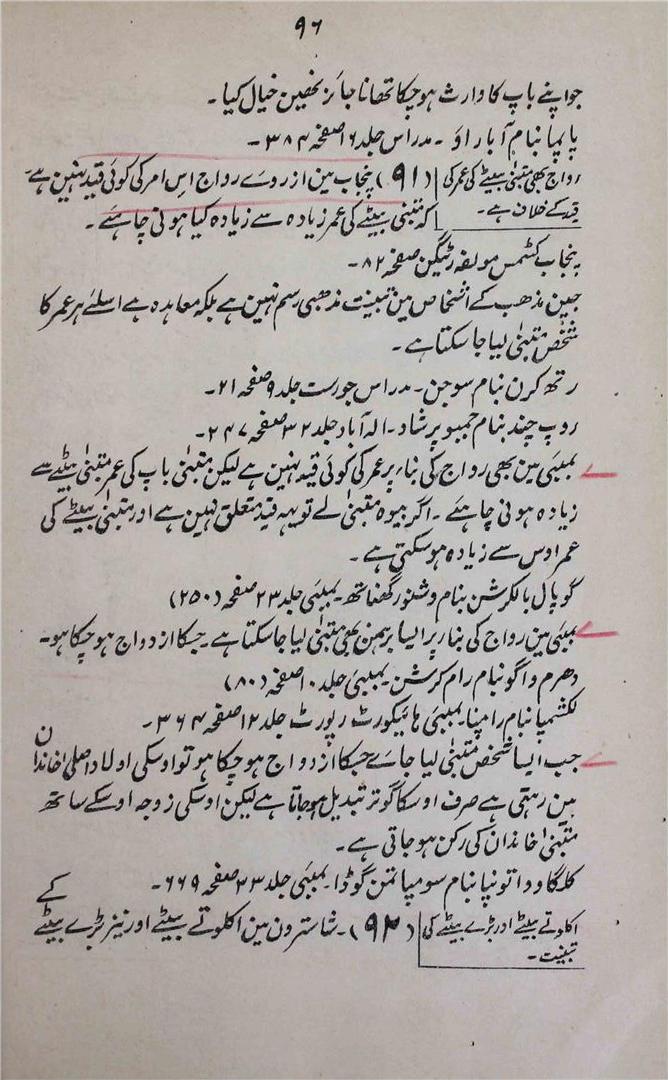 ۹۶
جو اپنے باپ کا وارث ہو چکا تھا ناجائز نہین خیال کیا۔
پاپمپا بنام آپاراؤ۔ مدراس جلد ۱۶ صفحہ ۳۸۴۔
رواج بھی متبنیٰ بیٹے کی عمر کی
قید کے خلاف ہے۔
(۹۱) پنجاب مین ازروے رواج اس امر کی کوئی قید نہین ہے
کہ متبنیٰ بیٹے کی عمر زیادہ سے زیادہ کیا ہونی چاہئے۔
پنجاب کسٹمس مولفہ رٹیگن صفحہ ۸۲۔
جین مذھب کے اشخاص مین تبنیت مذھبی رسم نہین ہے بلکہ معاہدہ ہے اسلئے ہر عمر کا
شخص متبنیٰ لیا جا سکتا ہے۔
رتھ کرن بنام سوجن۔ مدراس جورست جلد ۹ صفحہ ۲۱۔
روپ چند بنام جمبو پرشاد۔ الہ آباد جلد ۳۲ صفحہ ۲۴۷۔
بمبئی مین بھی رواج کی بناء پر عمر کی کوئی قید نہین ہے لیکن متبنیٰ باپ کی عمر متبنیٰ بیٹے سے
زیادہ ہونی چاہئے۔ اگر بیوہ متبنیٰ لے تو یہہ قید متعلق نہین ہے اور متبنیٰ بیٹے کی
عمر اوس سے زیادہ ہو سکتی ہے۔
گوپال بالکرشن بنام وشنو رگھناتھ۔ بمبئی جلد ۲۳ صفحہ (۲۵۰)
بمبئی مین رواج کی بناء پر ایسا برہمن بھی متبنیٰ لیا جا سکتا ہے۔ جسکا ازدواج ہو چکا ہو۔
دھرم واگو بنام رام کرشن۔ بمبئی جلد ۱۰ صفحہ (۸۰)
لکشمپا بنام رامپنا۔ بمبئی ہائیکورٹ رپورٹ جلد ۱۲ صفحہ ۳۶۴۔
جب ایسا شخص متبنیٰ لیا جاے جسکا ازدواج ہو چکا ہو تو اوسکی اولاد اصلی خاندان
مین رہتی ہے صرف اوسکا گوتر تبدیل ہو جاتا ہے لیکن اوسکی زوجہ اوسکے ساتھ
متبنیٰ خاندان کی رکن ہو جاتی ہے۔
کلگاودا تونپا بنام سومپا تمن گوڈا۔ بمبئی جلد ۳۳ صفحہ ۶۶۹۔
اکلوتے بیٹے اور بڑے بیٹے کی
تبنیت۔
(۹۲)۔ شاسترون مین اکلوتے بیٹے اور نیز بڑے بیٹے کے